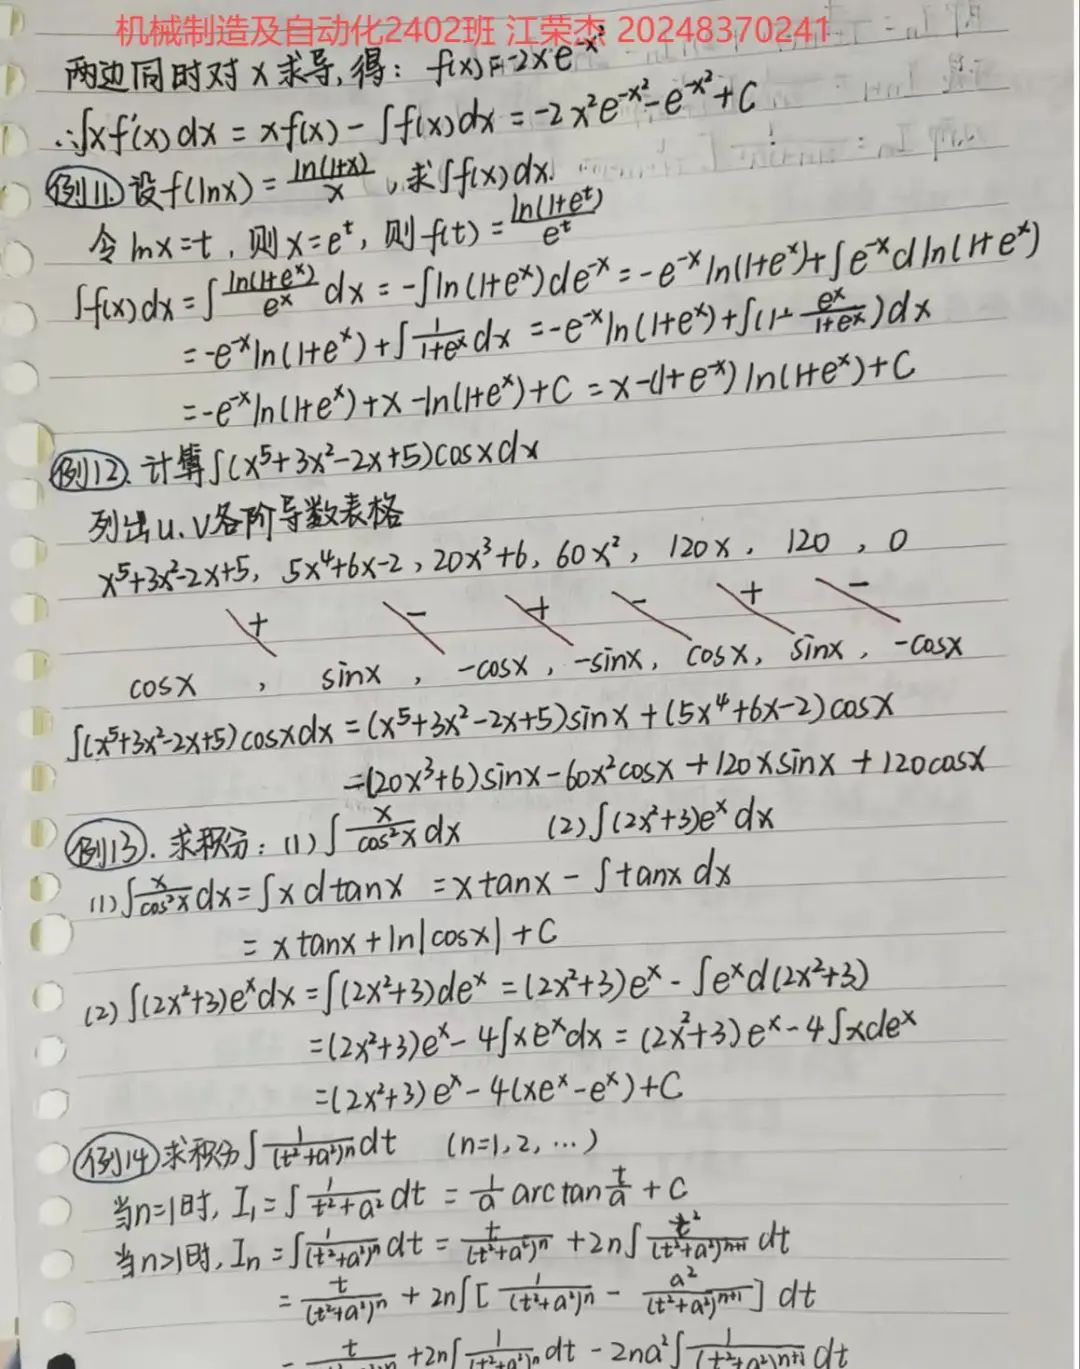 机械制造及自动化2402班 江荣杰 20248370241
两边同时对x求导,得: f(x)=-2xe^{-x²}
∴∫xf'(x)dx = xf(x) - ∫f(x)dx = -2x²e^{-x²} - e^{-x²} + C
例11. 设f(lnx) = \frac{ln(1+x)}{x}, 求∫f(x)dx.
令lnx=t, 则x=e^t, 则f(t) = \frac{ln(1+e^t)}{e^t}
∫f(x)dx = ∫\frac{ln(1+e^x)}{e^x}dx = -∫ln(1+e^x)de^{-x} = -e^{-x}ln(1+e^x)+∫e^{-x}dln(1+e^x)
= -e^{-x}ln(1+e^x)+∫\frac{1}{1+e^x}dx = -e^{-x}ln(1+e^x)+∫(1-\frac{e^x}{1+e^x})dx
= -e^{-x}ln(1+e^x)+x-ln(1+e^x)+C = x-(1+e^{-x})ln(1+e^x)+C
例12. 计算∫(x⁵+3x²-2x+5)cosxdx
列出u.v各阶导数表格
x⁵+3x²-2x+5, 5x⁴+6x-2, 20x³+6, 60x², 120x, 120, 0
+ - + - + -
cosx, sinx, -cosx, -sinx, cosx, sinx, -cosx
∫(x⁵+3x²-2x+5)cosxdx = (x⁵+3x²-2x+5)sinx + (5x⁴+6x-2)cosx
=(20x³+6)sinx - 60x²cosx + 120xsinx + 120cosx
例13. 求积分: (1)∫\frac{x}{cos²x}dx (2)∫(2x²+3)e^xdx
(1)∫\frac{x}{cos²x}dx = ∫xdtanx = xtanx - ∫tanxdx
= xtanx + ln|cosx| + C
(2)∫(2x²+3)e^xdx = ∫(2x²+3)de^x = (2x²+3)e^x - ∫e^xd(2x²+3)
=(2x²+3)e^x - 4∫xe^xdx = (2x²+3)e^x - 4∫xde^x
=(2x²+3)e^x - 4(xe^x - e^x)+C
例14 求积分∫\frac{1}{(t²+a²)^n}dt (n=1,2,…)
当n=1时, I₁=∫\frac{1}{t²+a²}dt = \frac{1}{a}arctan\frac{t}{a} + C
当n>1时, I_n=∫\frac{1}{(t²+a²)^n}dt = \frac{t}{(t²+a²)^n} + 2n∫\frac{t²}{(t²+a²)^{n+1}}dt
= \frac{t}{(t²+a²)^n} + 2n∫[\frac{1}{(t²+a²)^n} - \frac{a²}{(t²+a²)^{n+1}}]dt
= \frac{t}{(t²+a²)^n} + 2n∫\frac{1}{(t²+a²)^n}dt - 2na²∫\frac{1}{(t²+a²)^{n+1}}dt